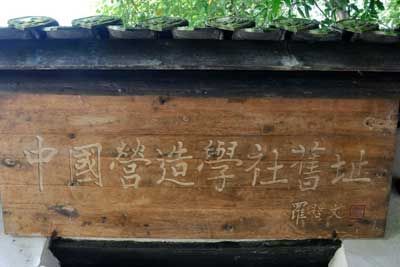 中國營造學社舊址
羅哲文